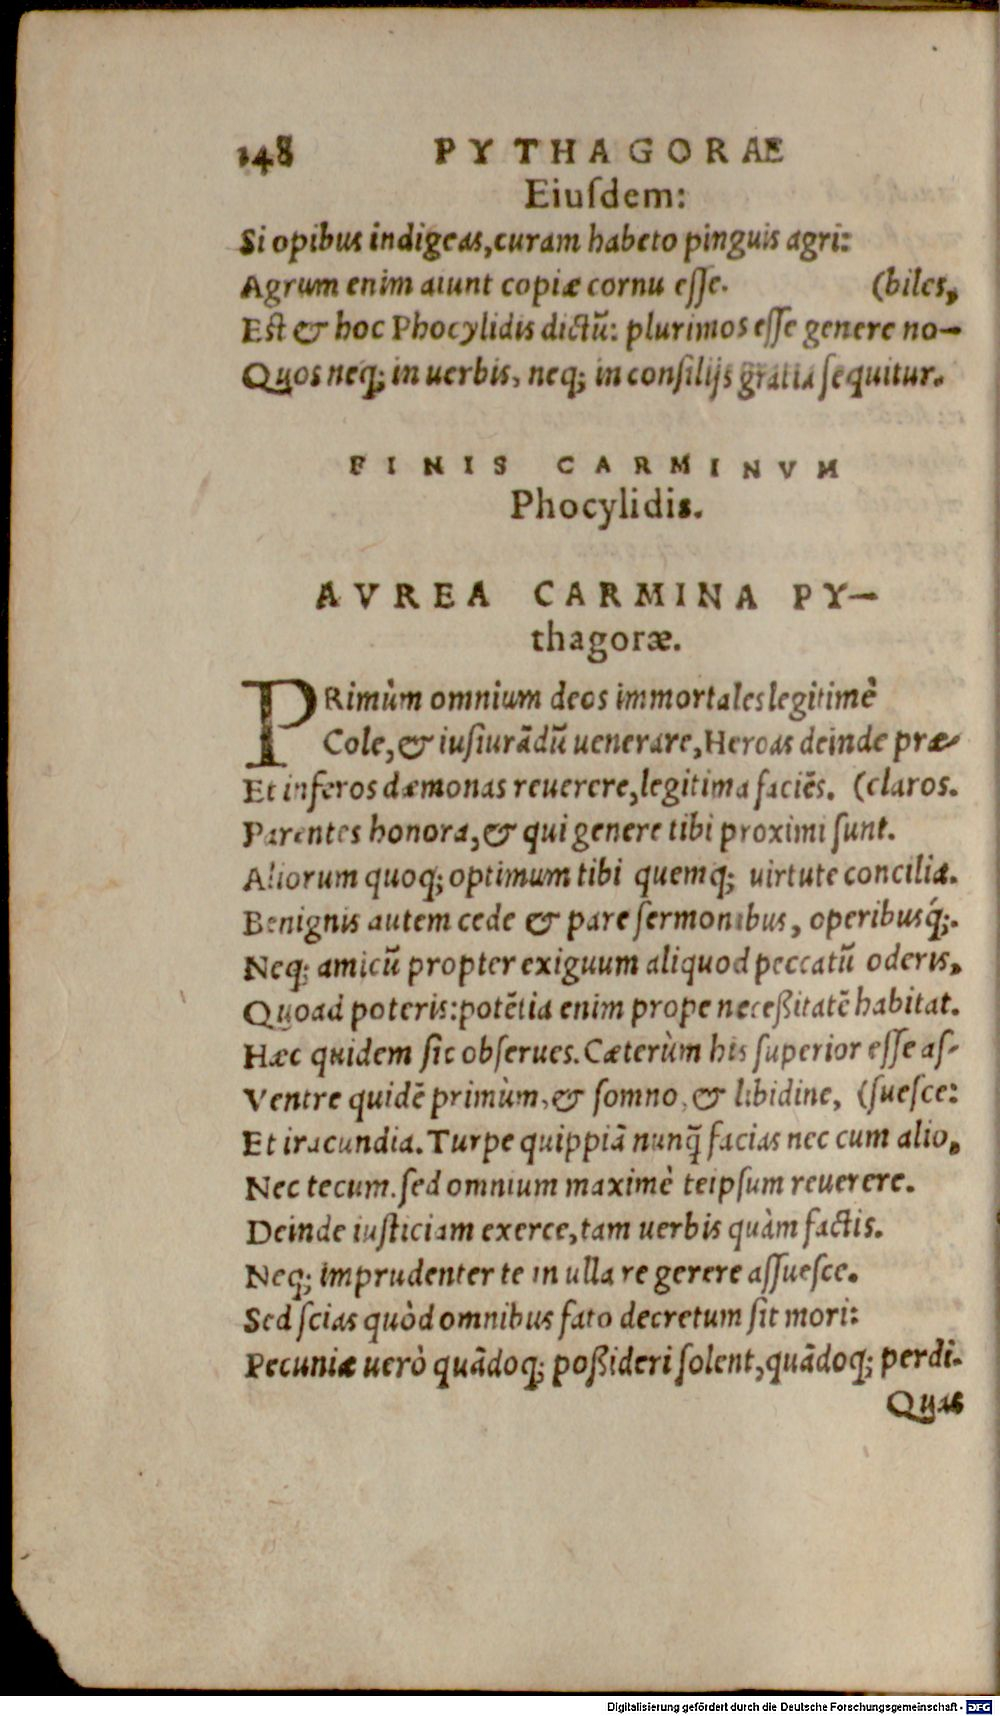 148 PYTHAGORÆ
Eiuſdem:
Si opibus indigeas, curam habeto pinguis agri:
Agrum enim aiunt copiæ cornu eſſe. (biles,
Eſt & hoc Phocylidis dictũ: plurimos eſſe genere no-
Quos neq́; in uerbis, neq; in conſilijs gratia ſequitur.
FINIS CARMINVM
Phocylidis.
AVREA CARMINA PY-
thagoræ.
PRimùm omnium deos immortales legitimè
Cole, & iuſiurãdũ uenerare, Heroas deinde præ-
Et inferos dæmonas reuerere, legitima faciẽs. (claros.
Parentes honora, & qui genere tibi proximi ſunt.
Aliorum quoq; optimum tibi quemq; uirtute concilia.
Benignis autem cede & pare ſermonibus, operibusq́;.
Neq; amicũ propter exiguum aliquod peccatũ oderis,
Quoad poteris: potẽtia enim prope neceßitatẽ habitat.
Hæc quidem ſic obſerues. Cæterùm his ſuperior eſſe aſ-
Ventre quidẽ primùm, & ſomno, & libidine, (ſueſce:
Et iracundia. Turpe quippiã nunq̃ facias nec cum alio,
Nec tecum. ſed omnium maximè teipſum reuerere.
Deinde iuſticiam exerce, tam uerbis quàm factis.
Neq; imprudenter te in ulla re gerere aſſueſce.
Sed ſcias quòd omnibus fato decretum ſit mori:
Pecuniæ uerò quãdoq; poßideri ſolent, quãdoq; perdi.
Quas
Digitalisierung gefördert durch die Deutsche Forschungsgemeinschaft - DFG